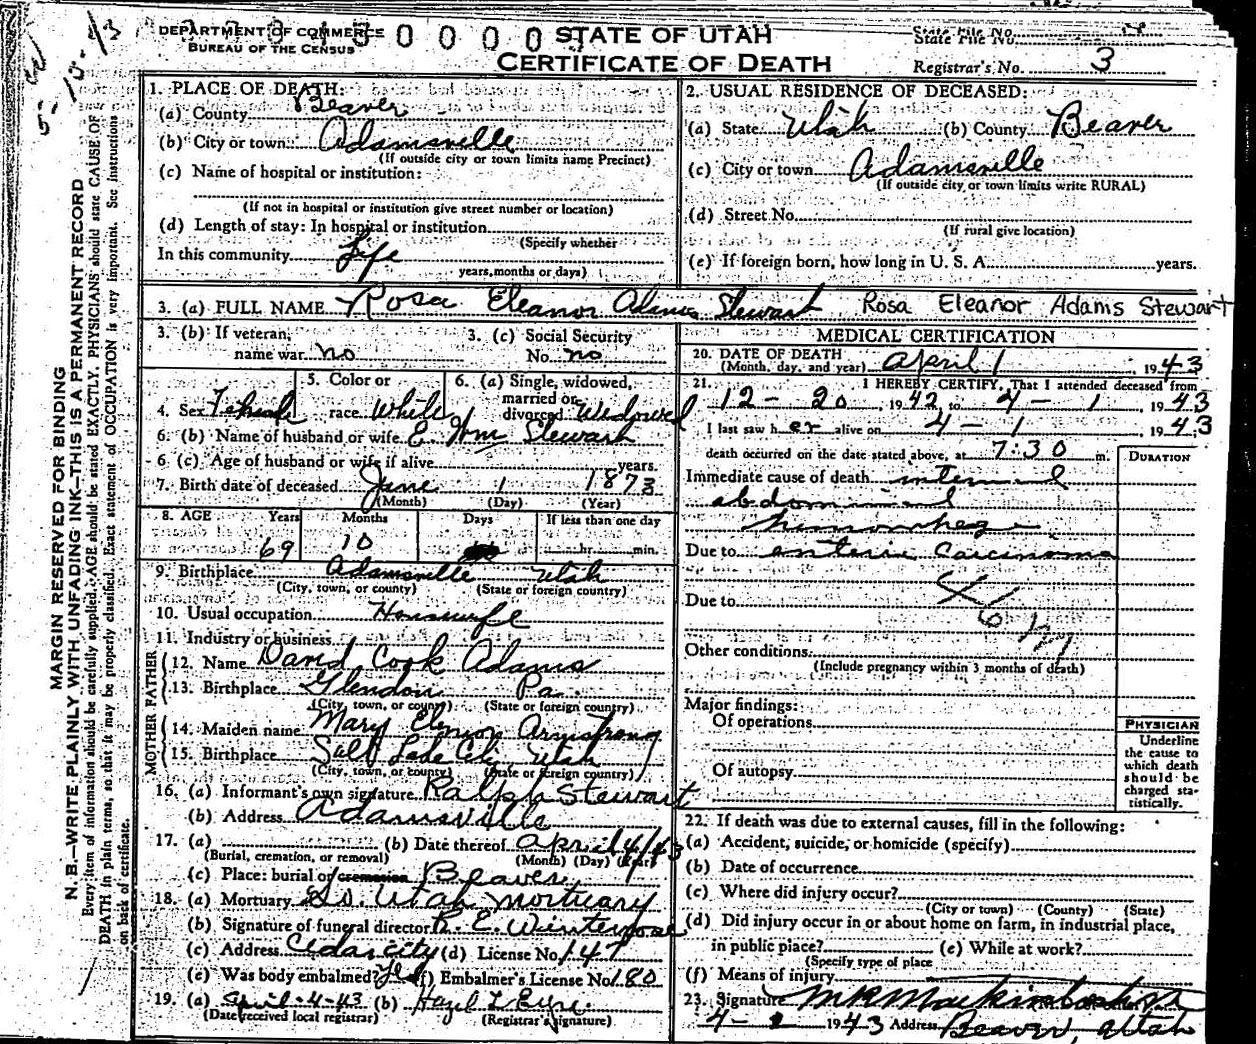 5-15-43
DEPARTMENT OF COMMERCE
BUREAU OF THE CENSUS
0 0 0 0
STATE OF UTAH
CERTIFICATE OF DEATH
State File No.
Registrar's No. 3
MARGIN RESERVED FOR BINDING
N. B.—WRITE PLAINLY WITH UNFADING INK—THIS IS A PERMANENT RECORD
Every item of information should be carefully supplied. AGE should be stated EXACTLY. PHYSICIANS should state CAUSE OF
DEATH in plain terms, so that it may be properly classified. Exact statement of OCCUPATION is very important. See instructions
on back of certificate.
1. PLACE OF DEATH:
(a) County Beaver
(b) City or town Adamsville
(If outside city or town limits name Precinct)
(c) Name of hospital or institution:
(If not in hospital or institution give street number or location)
(d) Length of stay: In hospital or institution
(Specify whether
In this community Life
years, months or days)
2. USUAL RESIDENCE OF DECEASED:
(a) State Utah (b) County Beaver
(c) City or town Adamsville
(If outside city or town limits write RURAL)
(d) Street No.
(If rural give location)
(e) If foreign born, how long in U. S. A. years.
3. (a) FULL NAME Rosa Eleanor Adams Stewart Rosa Eleanor Adams Stewart
3. (b) If veteran, name war no
3. (c) Social Security No. no
4. Sex Female
5. Color or race White
6. (a) Single, widowed, married or divorced Widowed
6. (b) Name of husband or wife E Wm Stewart
6 (c) Age of husband or wife if alive years.
7. Birth date of deceased June 1 1873
(Month) (Day) (Year)
8. AGE Years Months Days If less than one day
69 10 hr. min.
9. Birthplace Adamsville Utah
(City, town, or county) (State or foreign country)
10. Usual occupation Housewife
11. Industry or business
FATHER
12. Name David Cook Adams
13. Birthplace Glendon Pa.
(City, town, or county) (State or foreign country)
MOTHER
14. Maiden name Mary Armstrong
15. Birthplace Salt Lake City Utah
(City, town, or county) (State or foreign country)
16. (a) Informant's own signature Ralph Stewart
(b) Address Adamsville
17. (a) (b) Date thereof April 4/43
(Burial, cremation, or removal) (Month) (Day) (Year)
(c) Place: burial or cremation Beaver
18. (a) Mortuary So. Utah Mortuary
(b) Signature of funeral director R. E. Winterrose
(c) Address Cedar City (d) License No. 147
(e) Was body embalmed? Yes (f) Embalmer's License No. 180
19. (a) April-4-43 (b) Hazel L Eyre
(Date received local registrar) (Registrar's signature)
MEDICAL CERTIFICATION
20. DATE OF DEATH
(Month, day, and year) April 1, 1943
21. I HEREBY CERTIFY, That I attended deceased from
12-20, 1942, to 4-1, 1943
I last saw her alive on 4-1, 1943
death occurred on the date stated above, at 7:30 m.
DURATION
Immediate cause of death internal
abdominal
hemorrhage
Due to enteric carcinoma
Due to
46
Other conditions
(Include pregnancy within 3 months of death)
Major findings:
Of operations
Of autopsy
PHYSICIAN
Underline
the cause to
which death
should be
charged sta-
tistically.
22. If death was due to external causes, fill in the following:
(a) Accident, suicide, or homicide (specify)
(b) Date of occurrence
(c) Where did injury occur?
(City or town) (County) (State)
(d) Did injury occur in or about home on farm, in industrial place,
in public place? (e) While at work?
(Specify type of place
(f) Means of injury
23. Signature
4- 1943 Address Beaver, Utah